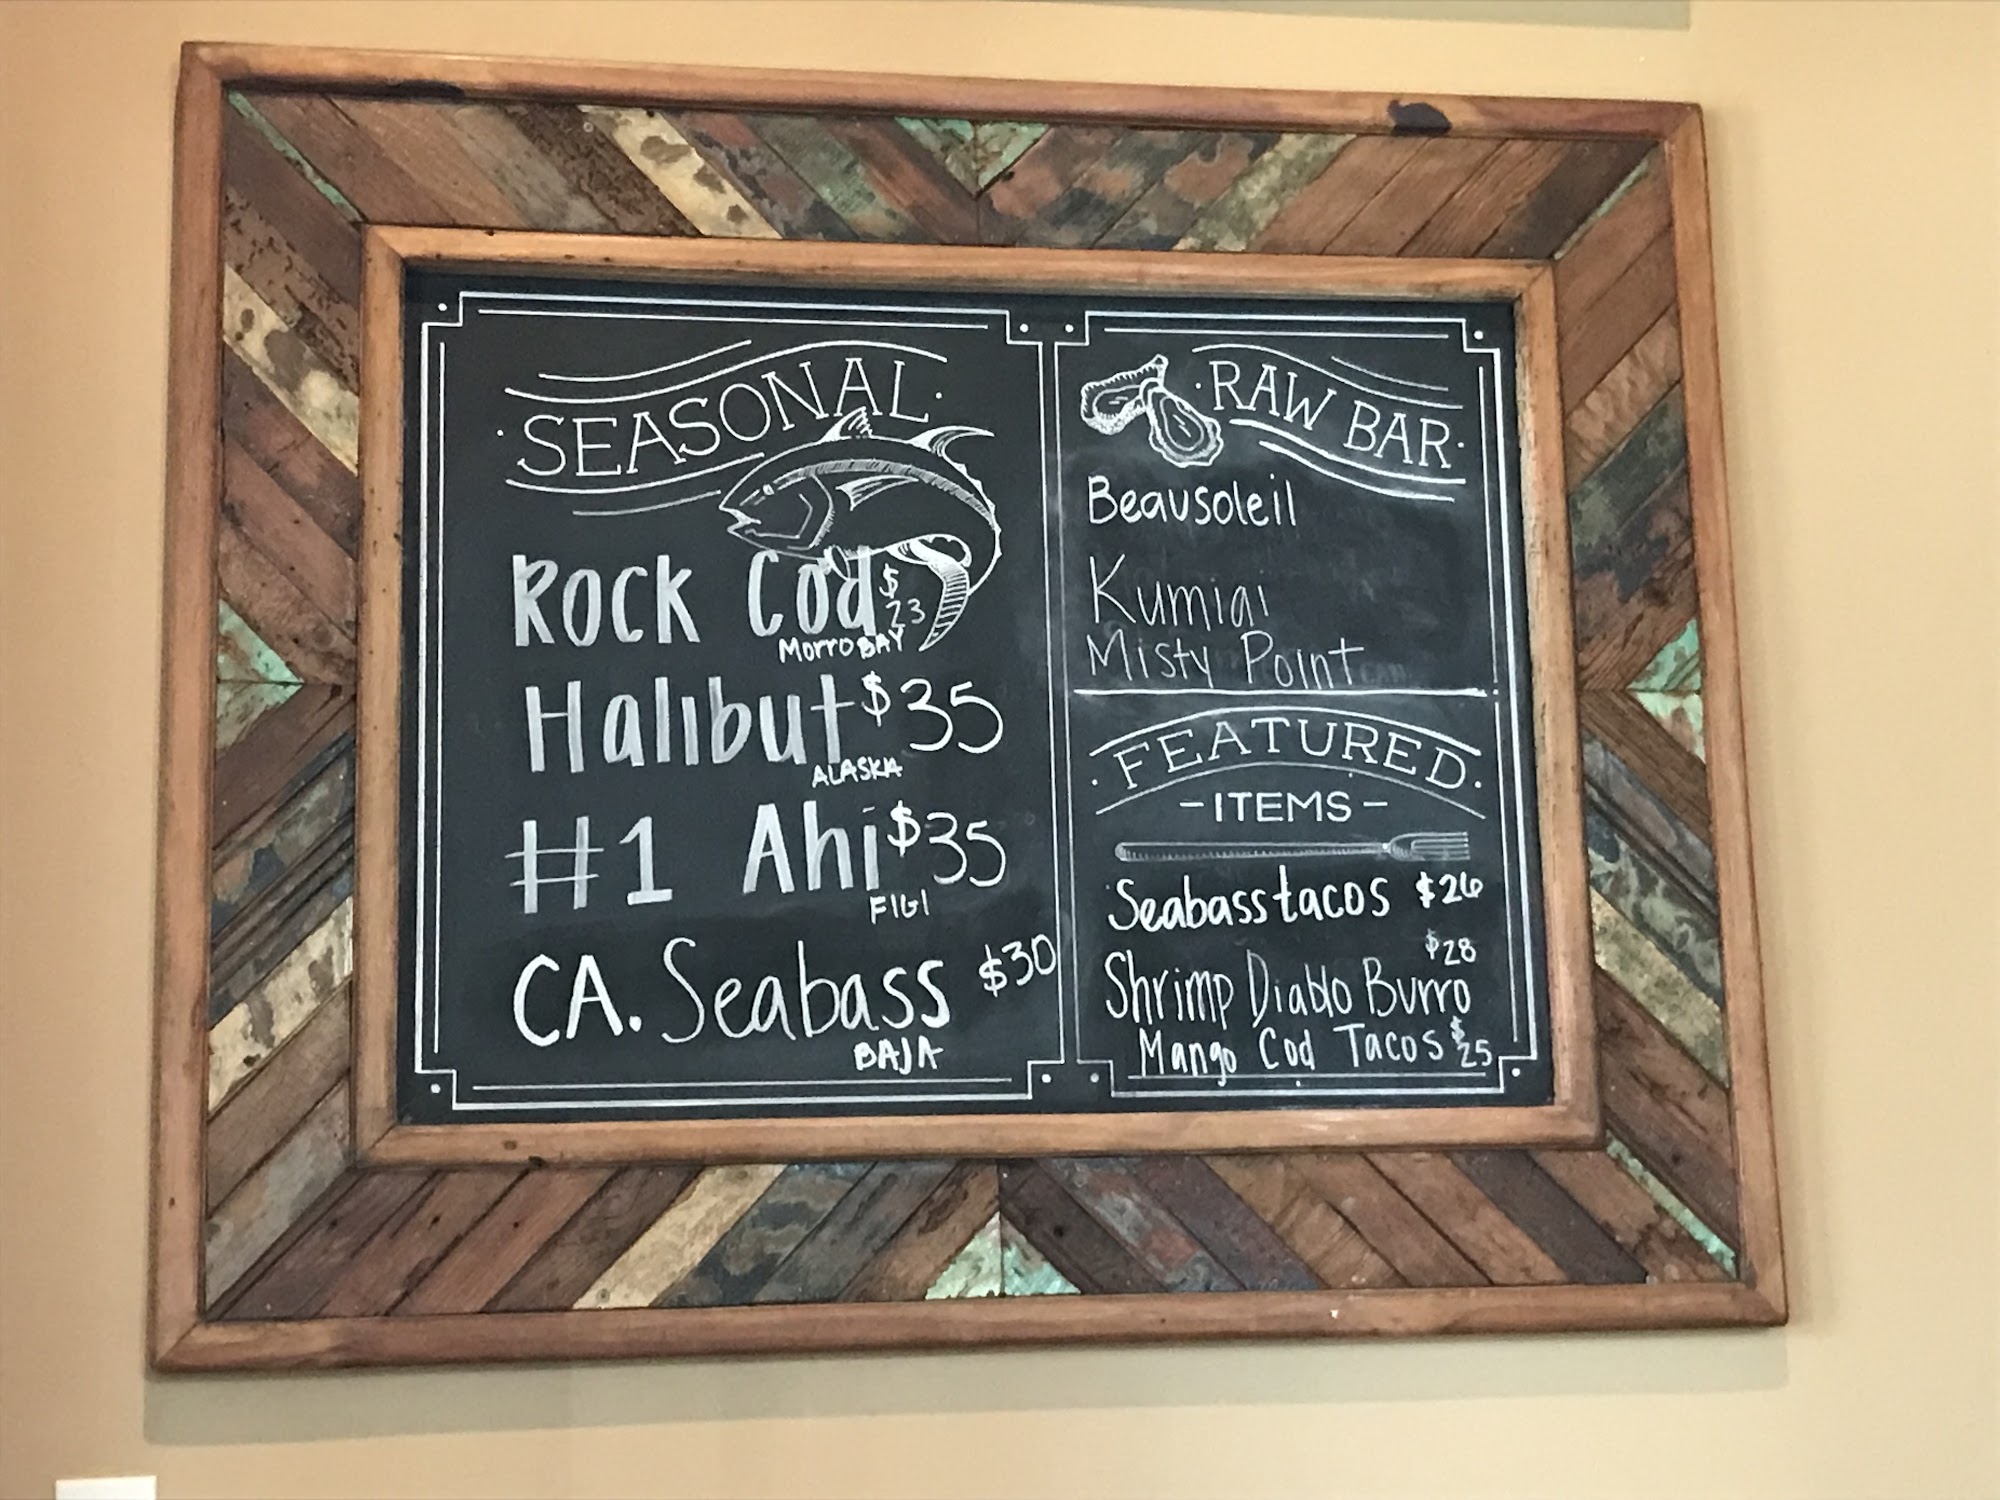 SEASONAL
Rock Cod $23
Morro BAY
Halibut $35
ALASKA
#1 Ahi $35
FIGI
CA. Seabass $30
BAJA
RAW BAR
Beausoleil
Kumiai
Misty Point
FEATURED
-ITEMS-
Seabass tacos $26
$28
Shrimp Diablo Burro
Mango Cod Tacos $25